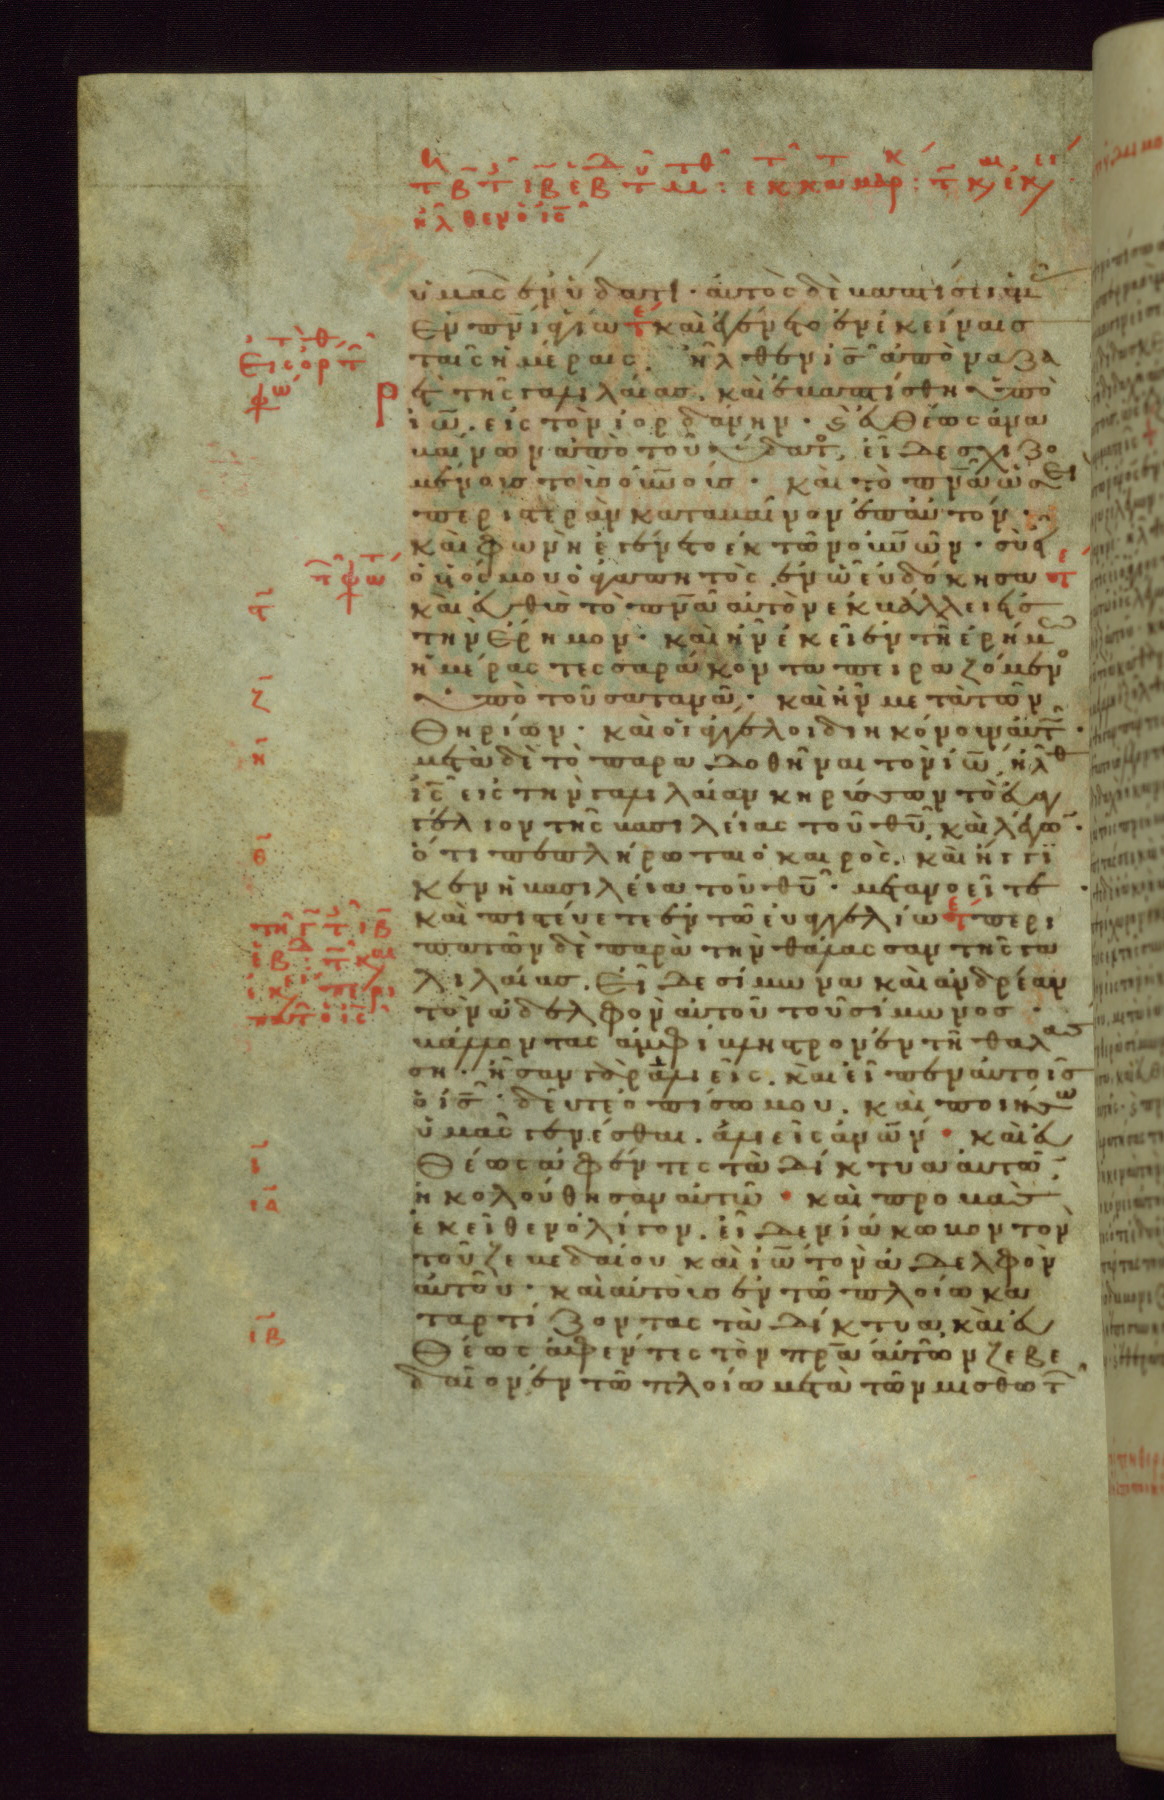 ὑμᾶς ἐν ὕδατι · αὐτὸς δὲ βαπτίσει ὑμ
ἐν πνι ἁγίω καὶ ἐγένετο ἐν ἐκείναισ
ταῖς ἡμέραις. ἦλθεν ις ἀπὸ ναζα
ρὲτ τῆς γαλιλαίασ. καὶ ἐβαπτίσθη ὑπὸ
ιω. εἰς τὸν ἰορδάνην · εὐθέως ἀνα
βαίνων ἀπὸ τοῦ ὕδατ, εἶδε σχιζο
μένουσ τοὺσ οὐνούσ · καὶ τὸ πνα ὡσεὶ
περιστερὰν καταβαῖνον ἐπ αὐτόν ·
καὶ φωνὴ ἐγένετο ἐκ τῶν οὐνῶν · σὺ εἶ
ὁ υἱός μου ὁ ἀγαπητὸς. ἐν ὧ εὐδόκησα
καὶ εὐθὺσ τὸ πνα αὐτὸν ἐκβάλλει εἰσ
τὴν ἔρημον · καὶ ἦν ἐκεῖ ἐν τῆ ἐρήμω
ἡμέρας τεσσαράκοντα πειραζόμενο
ὑπὸ τοῦ σατανᾶ · καὶ ἦν μετὰ τῶν
θηρίων · καὶ οἱ ἄγγελοι διηκόνουν αὐτ ·
μετὰ δὲ τὸ παραδοθῆναι τὸν ιω, ἦλθ
ις εἰς τὴν γαλιλαίαν κηρύσσων τὸ εὐαγ
γέλιον τῆς βασιλείας τοῦ θυ, καὶ λέγω ·
ὅτι πεπλήρωται ὁ καιρὸς. καὶ ἤγγι
κεν ἡ βασιλεία τοῦ θυ · μετανοεῖτε ·
καὶ πιστεύετε ἐν τῶ εὐαγγελίω περι
πατῶν δὲ παρὰ τὴν θάλασσαν τῆς γα
λιλαίασ. εἶδε σίμωνα καὶ ἀνδρέαν
τὸν ἀδελφὸν αὐτοῦ τοῦ σίμωνοσ ·
βάλλοντας ἀμφίβληστρον ἐν τῆ θαλασ
ση · ἦσαν γὰρ ἁλιεῖς. καὶ εἶπεν αὐτοῖσ
ὁ ις · δεῦτε ὀπίσω μου. καὶ ποιήσω
ὑμᾶς γενέσθαι. ἁλιεῖς ἀνων · καὶ εὐ
θέως ἀφέντες τὰ δίκτυα αὐτῶ
ἠκολούθησαν αὐτῶ · καὶ προβὰσ
ἐκεῖθεν ὀλίγον. εἶδεν ἰάκωβον τὸν
τοῦ ζεβεδαίου καὶ ιω τὸν ἀδελφὸν
αὐτοῦ · καὶ αὐτοὺσ ἐν τῶ πλοίω κα
ταρτίζοντας τὰ δίκτυα, καὶ εὐ
θέως ἀφέντες τὸν πρα αὐτῶν ζεβε
δαῖον ἐν τῶ πλοίω μετὰ τῶν μισθωτ